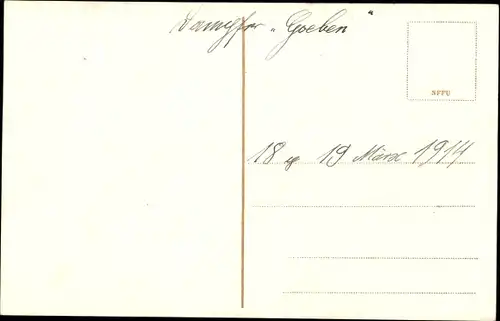 Dampfer „Goeben“
NFPU
18 u 19 März 1914